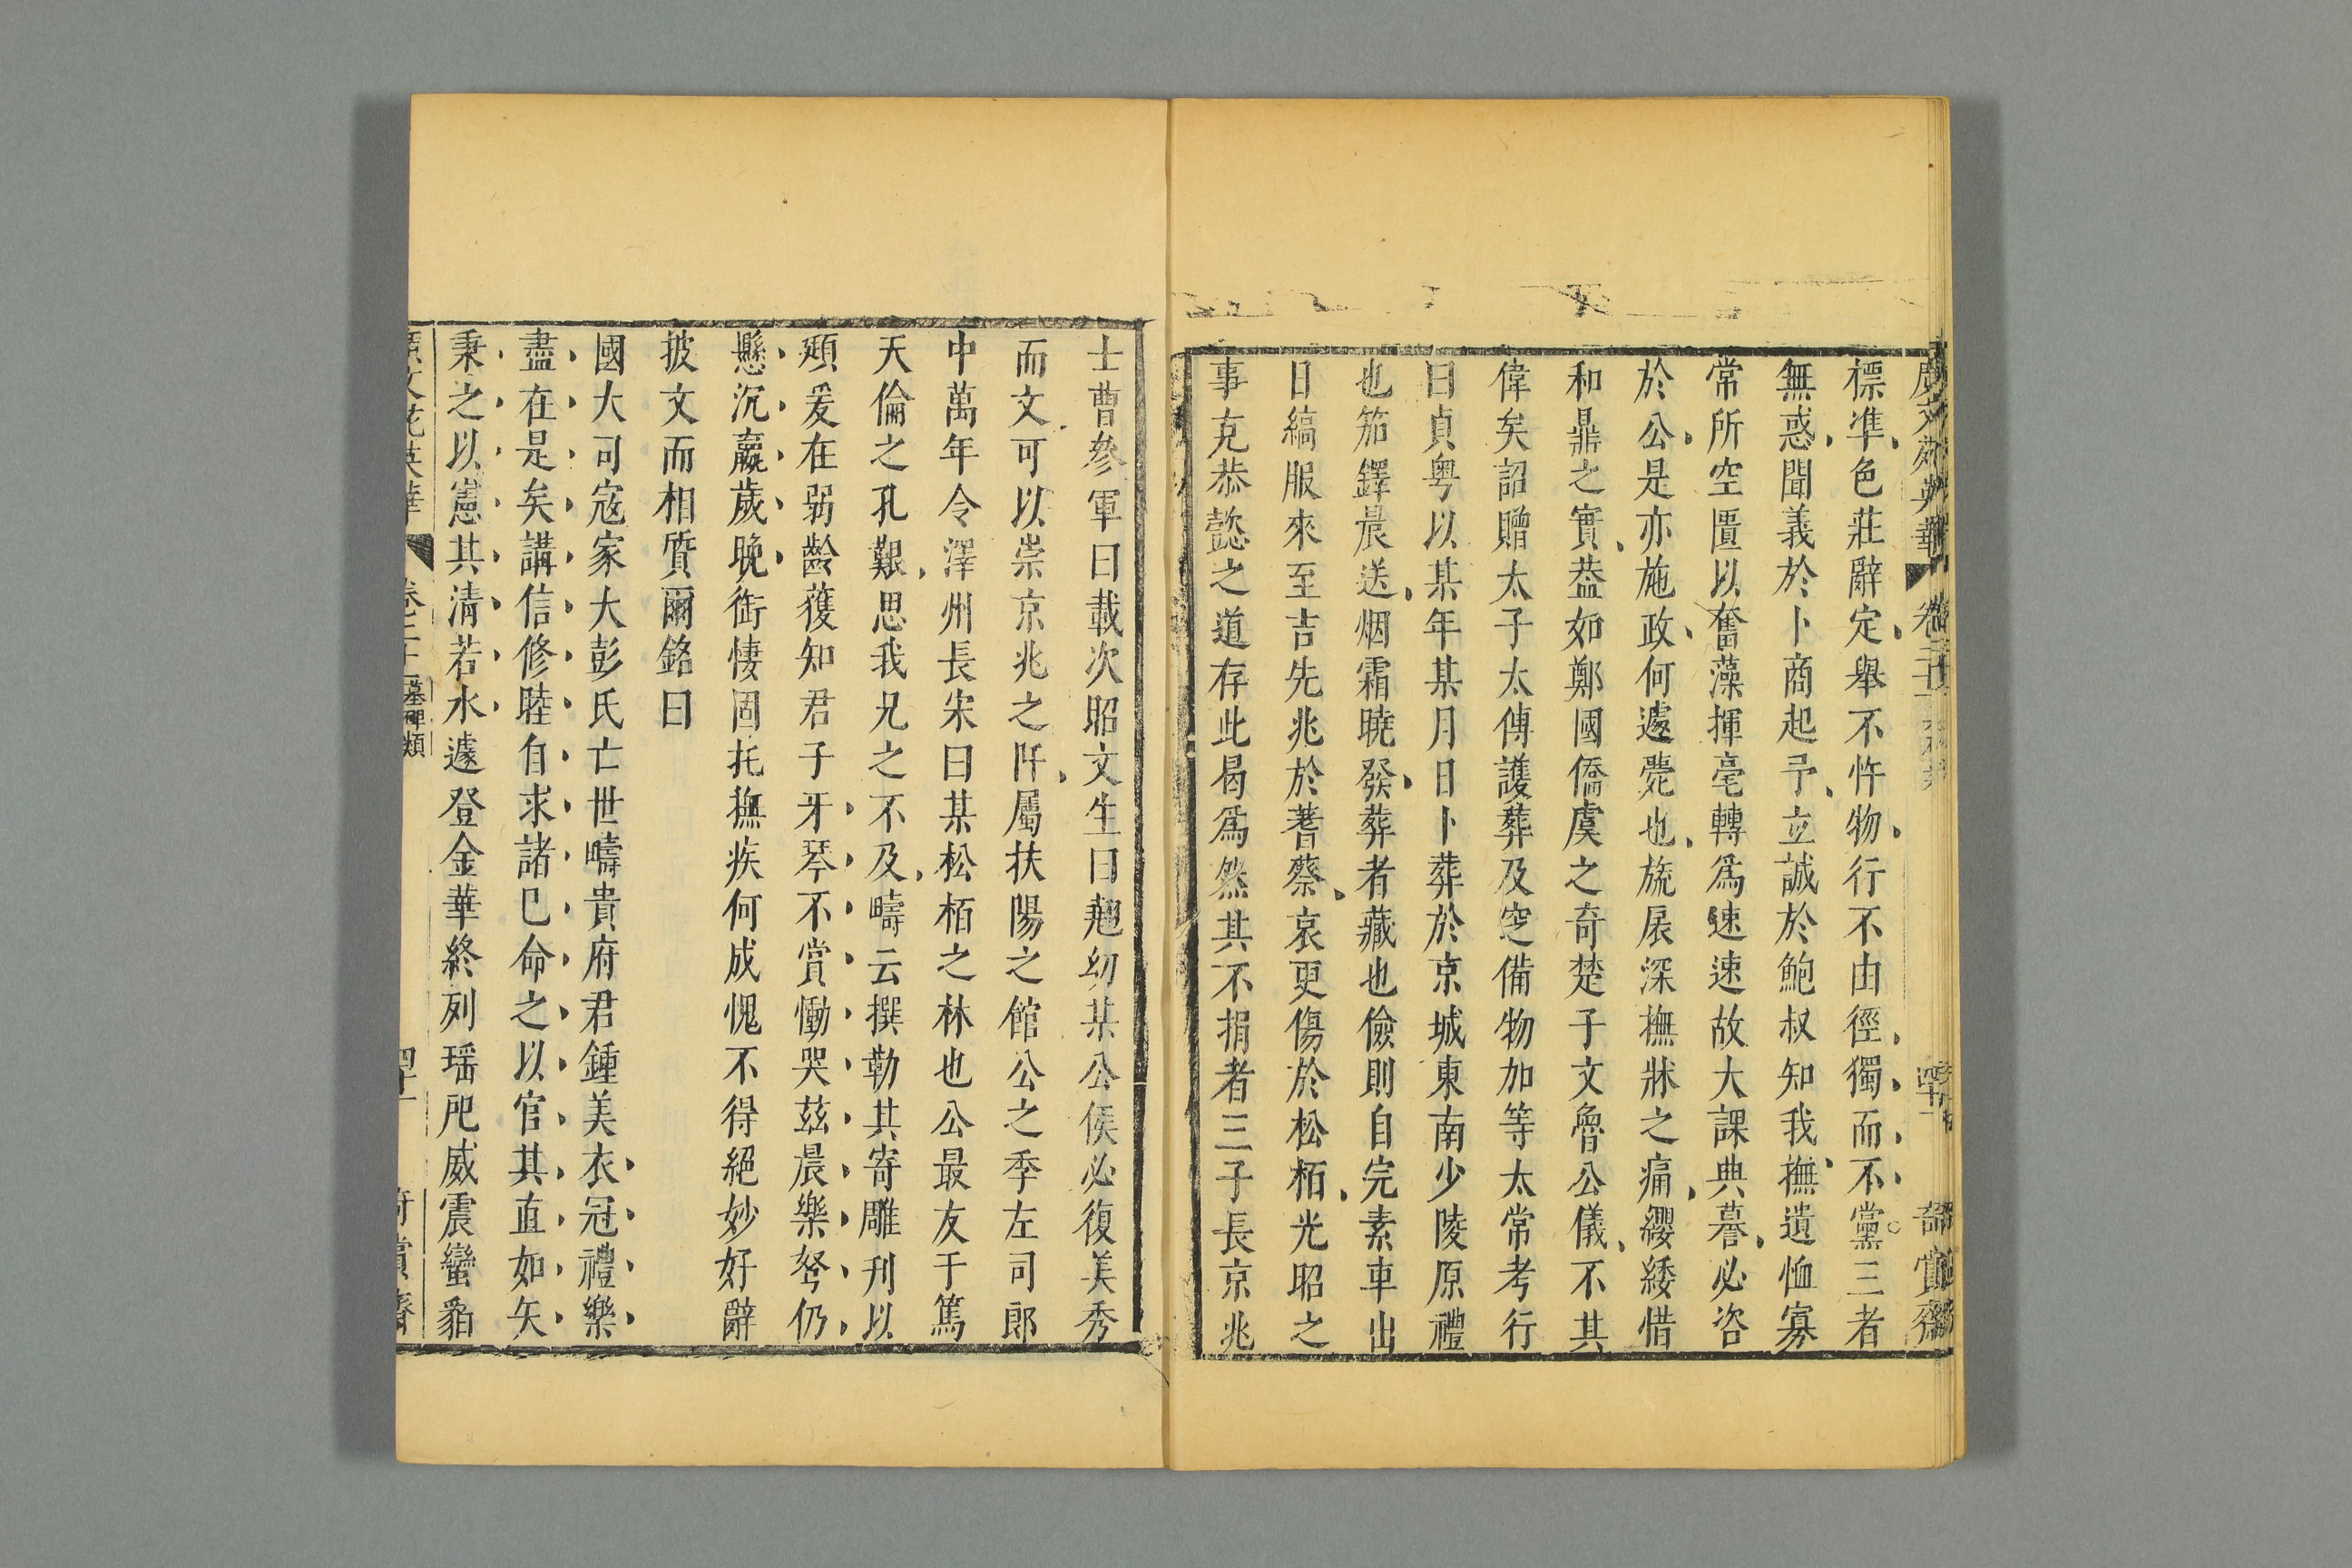 標準色莊辭定舉不忤物行不由徑獨而不黨三者
無惑聞義於卜商起予立誠於鮑叔知我撫遺恤寡
常所空匱以奮藻揮毫轉爲速速故大課典摹必咨
於公是亦施政何遽薨也旒扆深撫牀之痛纓緌惜
和鼎之實葢如鄭國僑虞之奇楚子文魯公儀不其
偉矣詔贈太子太傅護葬及窆備物加等太常考行
曰貞粤以某年某月日卜葬於京城東南少陵原禮
也笳鐸晨送烟霜曉發葬者藏也儉則自完素車出
日縞服來至吉先兆於蓍蔡哀更傷於松栢光昭之
事克恭懿之道存此曷爲然其不捐者三子長京兆
士曹參軍曰載次昭文生曰翹幼某公侯必復美秀
而文可以崇京兆之阡屬扶陽之館公之季左司郎
中萬年令澤州長宋曰某松栢之林也公最友于篤
天倫之孔艱思我兄之不及疇云撰勒其寄雕刋以
頲爰在弱齡獲知君子牙琴不賞慟哭茲晨樂駑仍
懸沉羸歲晚銜悽固托撫疾何成愧不得絕妙好辭
披文而相質爾銘曰
國大可宼家大彭氏亡世疇貴府君鍾美衣冠禮樂
盡在是矣講信修睦自求諸巳命之以官其直如矢
秉之以憲其清若水遽登金華終列瑶戺威震蠻貊
卷二十 墓碑類